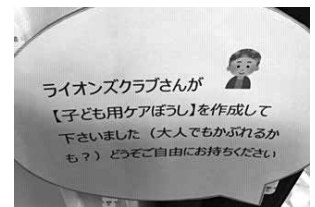 ライオンズクラブさんが
【子ども用ケアぼうし】を作成して
下さいました（大人でもかぶれるか
も？）どうぞご自由にお持ちください